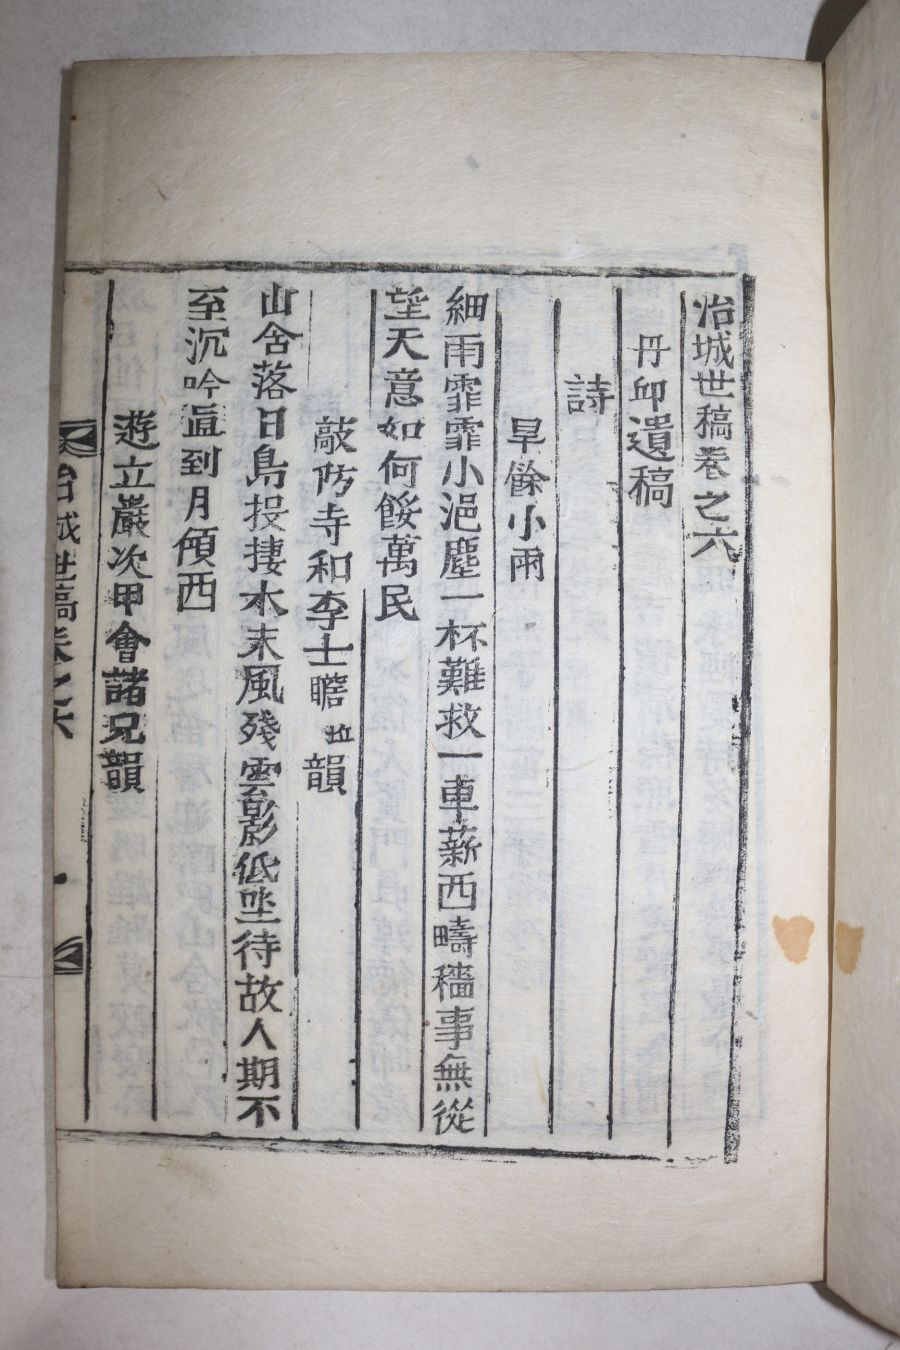 冶城世稿卷之六
丹邱遺稿
詩
旱餘小雨
細雨霏霏小浥塵一杯難救一車薪西疇穡事無從
望天意如何餒萬民
敲防寺和李士瞻 拉 韻
山含落日鳥投捿木末風殘雲影低坐待故人期不
至沉吟直到月傾西
遊立巖次甲會諸兄韻
冶城世稿卷之六 一